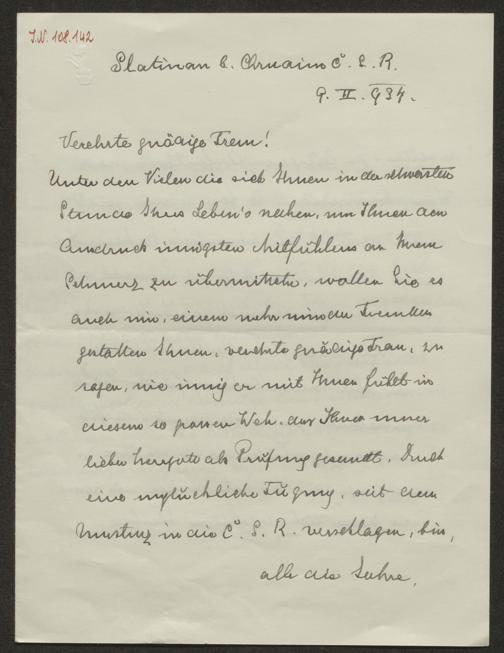 J.N. 108.142
Platinan b. Chruaim Č. S. R.
9. II. 934.
Verehrte gnädige Frau!
Unter den Vielen die sich Ihnen in der schwersten
Stunde Ihres Leben's nahen, um Ihnen den
Ausdruck innigsten Mitgefühlens an Ihrem
Schmerz zu übermitteln, wollen Sie es
auch mir, einem mehr minder Fremden
gestatten Ihnen, verehrte gnädige Frau, zu
sagen, wie innig er mit Ihnen fühlt in
diesem so grossen Weh, das Ihnen unser
lieber Herrgott als Prüfung gesandt. Durch
eine unglückliche Fügung, seit dem
Umsturz in die Č. S. R. verschlagen, bin,
alle die Jahre,